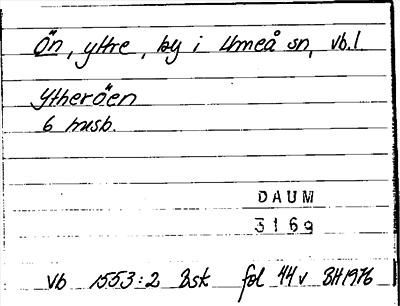 Ön, yttre, by i Umeå sn, vb.l
Ytheröen
6 husb.
DAUM
3169
Vb 1553:2 Bsk fol 44v BH1976